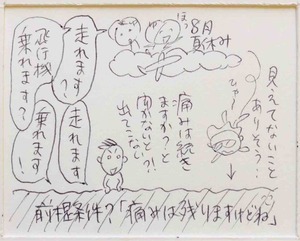 8月
夏休み
ほっ
走れます?
飛行機
乗れます?
走れます
乗れます!
見えてないこと
ありそう…
ひゅー
痛みは続き
ますか?と
聞かないと?!
出てこない
前提条件?「痛みは残りますけどね」